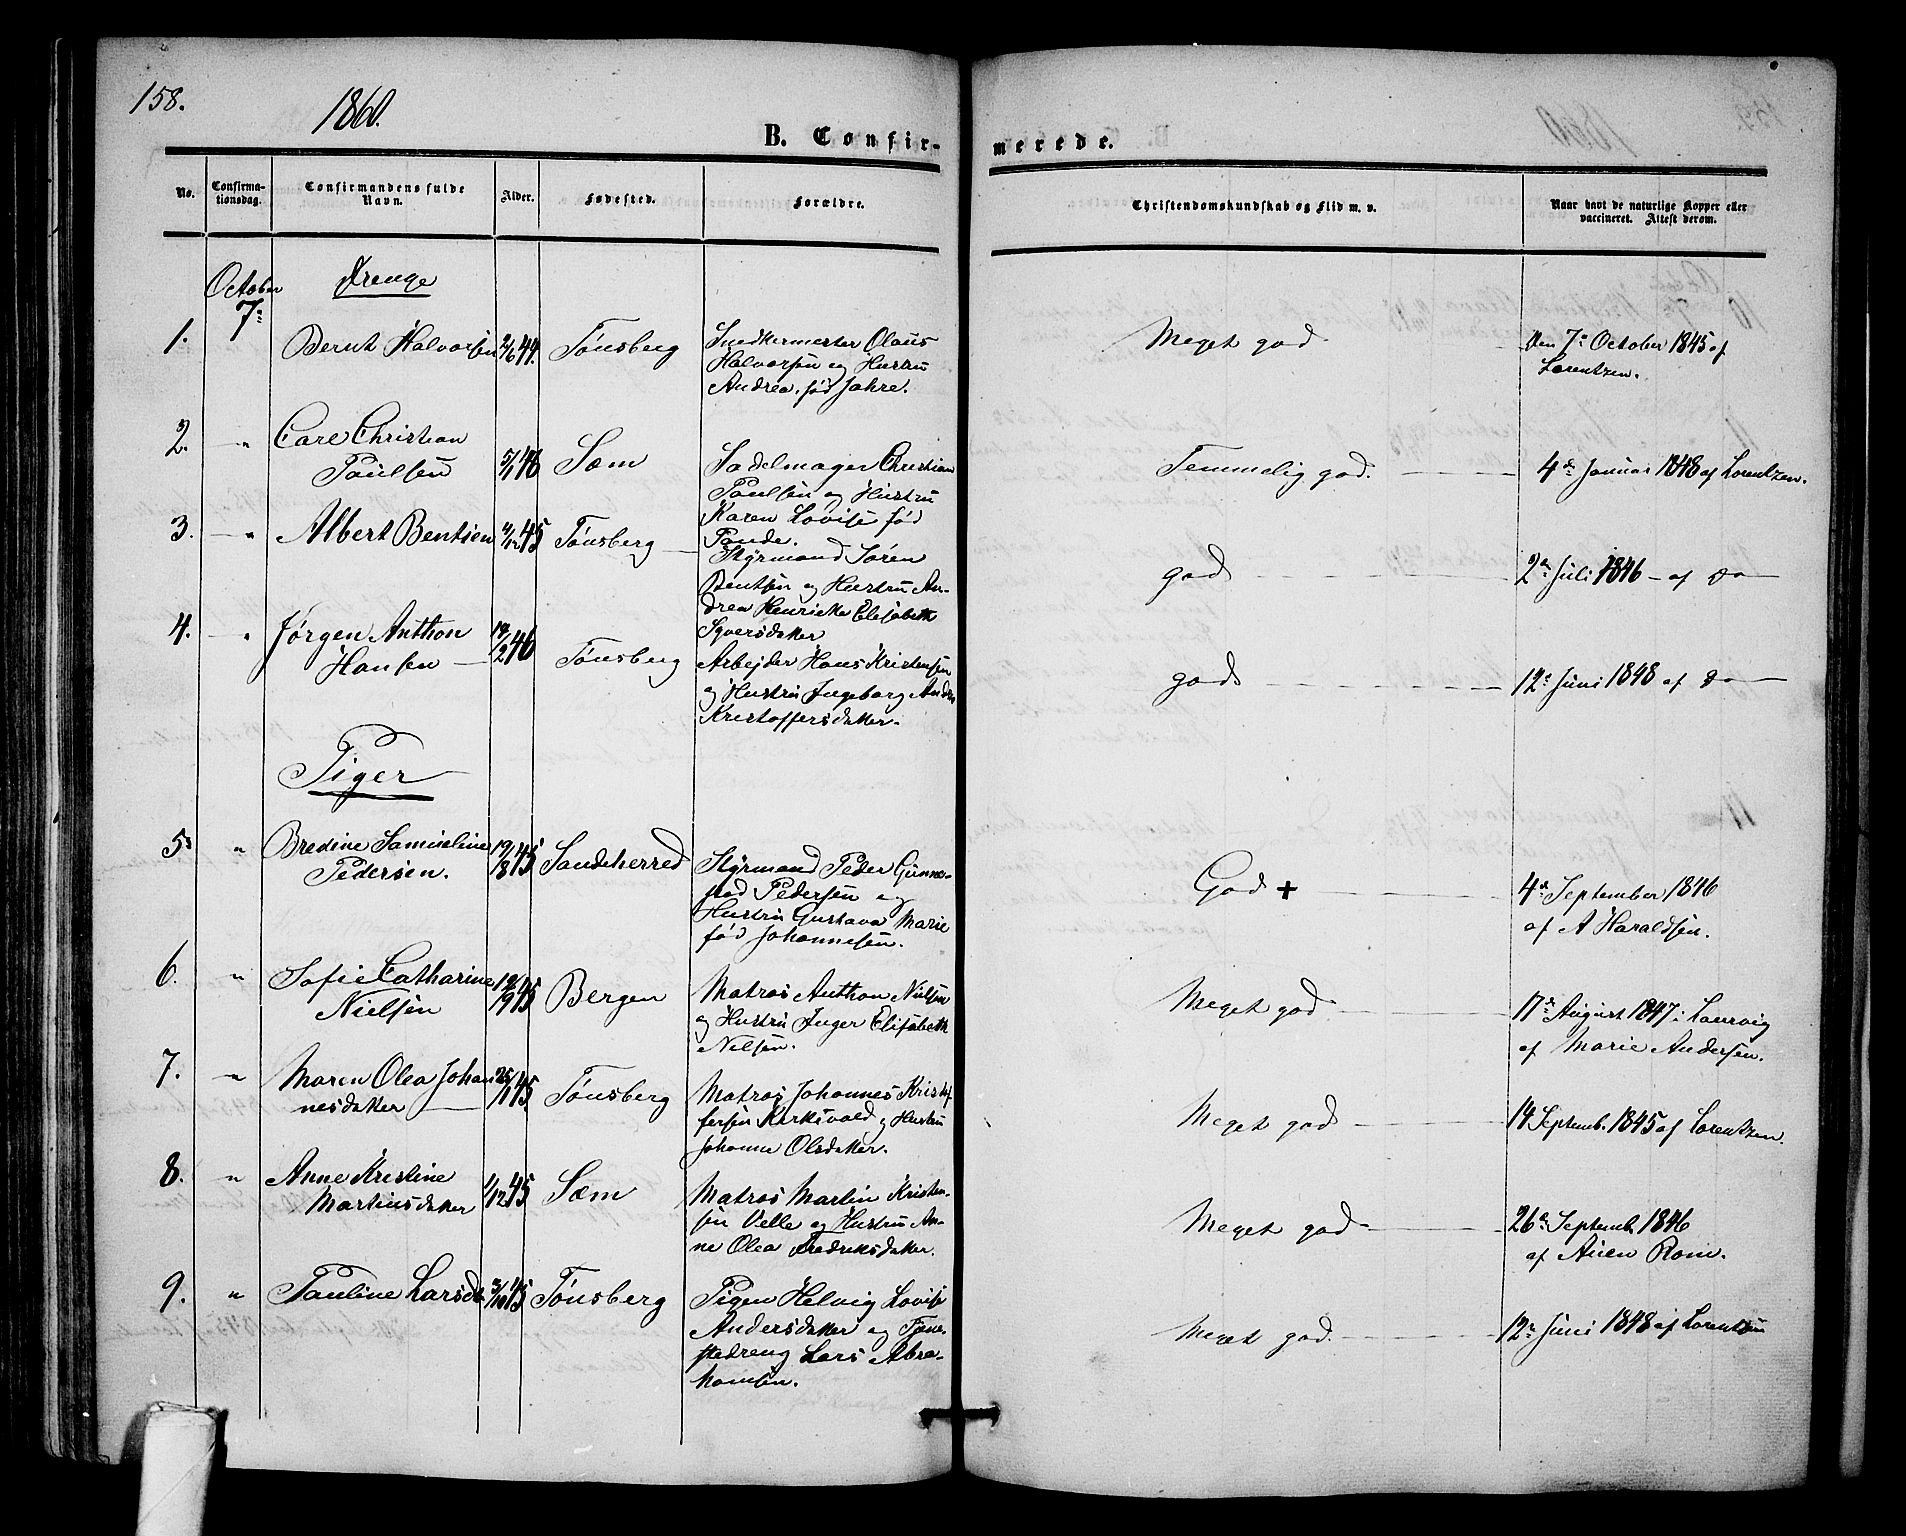 158.
1860.
B. Confir-
merede.
No.
Confirma-
tionsdag.
Confirmandens fulde
Navn.
Alder.
Fødested.
Forældre.
Christendomskundskab og Flid m. v.
Naar havt de naturlige Kopper eller
vaccineret. Attest derom.
October
7de
Drenge
1. Bernt Halvorsen 2/6 44. Tønsberg
Snedkermester Olaus
Halvorsen og Hustru
Andrea, fød Jahre.
Meget god
den 7de October 1845 af
Lorentzen.
2. " Carl Christian
Paulsen 5/1 46 Sæm
Sadelmager Christian
Paulsen og Hustru
Karen Lovise fød
Paude.
Temmelig god.
4de Januar 1848 af Lorentzen.
3. " Albert Bentsen 4/12 45 Tønsberg
Styrmand Søren
Bentsen og Hustru An-
drea Henrikke Elisabeth
Syversdatter
god
2den Juli 1846 - af do
4. " Jørgen Anthon
Hansen 14/2 46 Tønsberg
Arbejder Hans Kristensen
og Hustru Ingeborg Andrea
Kristoffersdatter.
god
12te Juni 1848 af do
Piger
5. " Bredine Samueline
Pedersen. 19/8 45 Sandeherred
Styrmand Peder Gunne-
stad Pedersen og
Hustru Gustava Marie
fød Johannesen.
God +
4de September 1846
af A Haraldsen.
6. " Sofie Catharine
Nielsen 19/9 45 Bergen
Matros Anthon Nielsen
og Hustru Inger Elisabeth
Nilsen.
Meget god
17de August 1847 i Laurvig
af Marie Andersen.
7. " Maren Olea Johan
nesdatter 25/1 45. Tønsberg
Matros Johannes Kristof-
fersen Kirkevold og Hustru
Johanne Olsdatter.
Meget god
14 Septemb. 1845 af Lorentzen.
8. " Anne Kristine
Martinsdatter 1/12 45 Sæm
Matros Martin Kristen-
sen Velle og Hustru An-
ne Olea Fredriksdatter.
Meget god
26de Septemb. 1846
af Auen Rom.
9. " Pauline Larsdtr 3/10 45 Tønsberg
Pigen Helvig Lovise
Andersdatter og Tjene-
stedreng Lars Abra-
hamsen.
Meget god.
12te Juni 1848 af Lorentzen